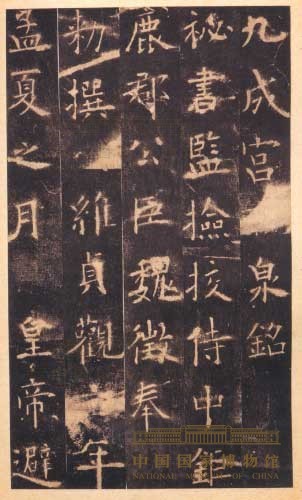 九成宮 泉銘
祕書監撿挍侍中
鹿郡公臣魏徵奉
勑撰 維貞觀 年
孟夏之月 皇帝避
中国国家博物馆
NATIONAL MUSEUM OF CHINA